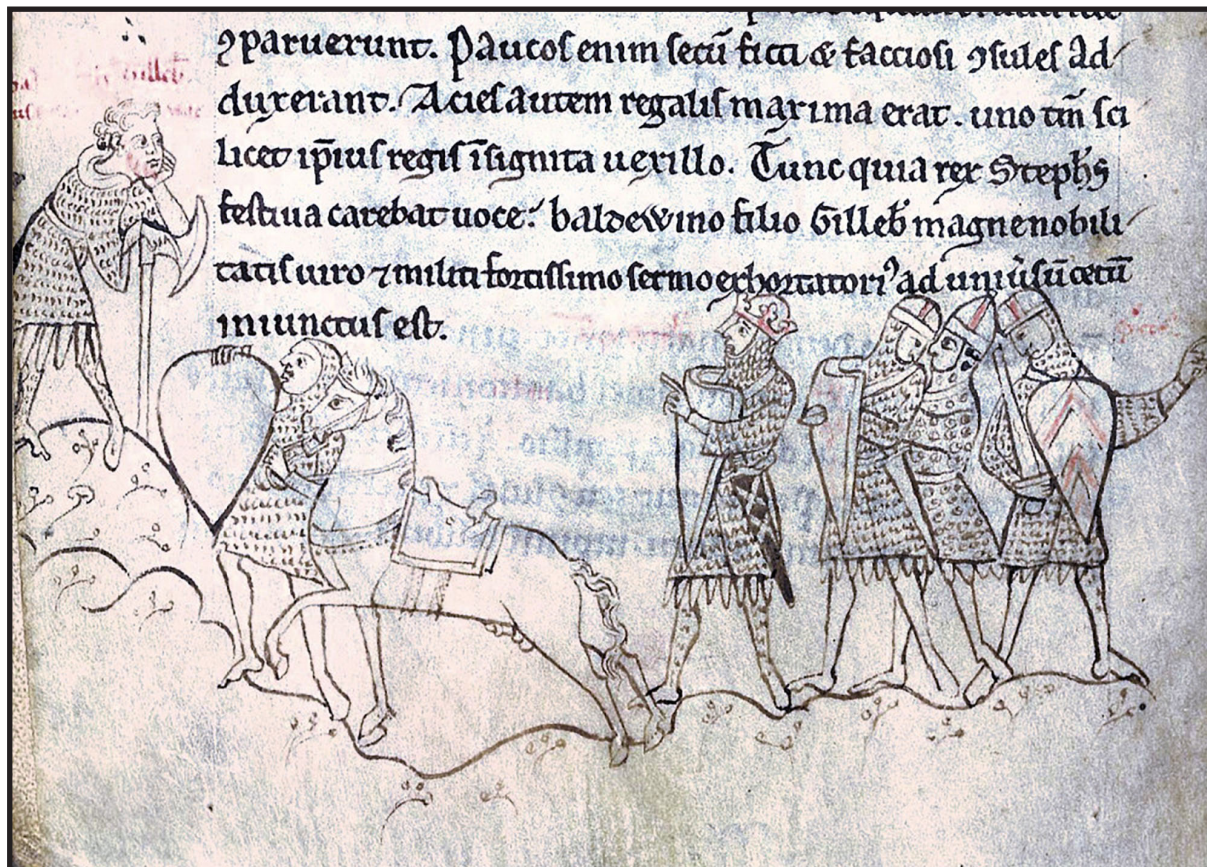 ꝯparuerunt. Paucos enim secū ficti & facciosi ꝯsules ad
duxerant. Acies autem regalis maxima erat. uno tm̄ sci
licet ip̄ius regis īsignita uexillo. Tunc quia rex Stephs
festiua carebat uoce: baldewino filio Gilleb̄ magne nobili
tatis uiro ⁊ militi fortissimo sermo exhortatoriꝰ ad uniūsū cetū
iniunctus est.